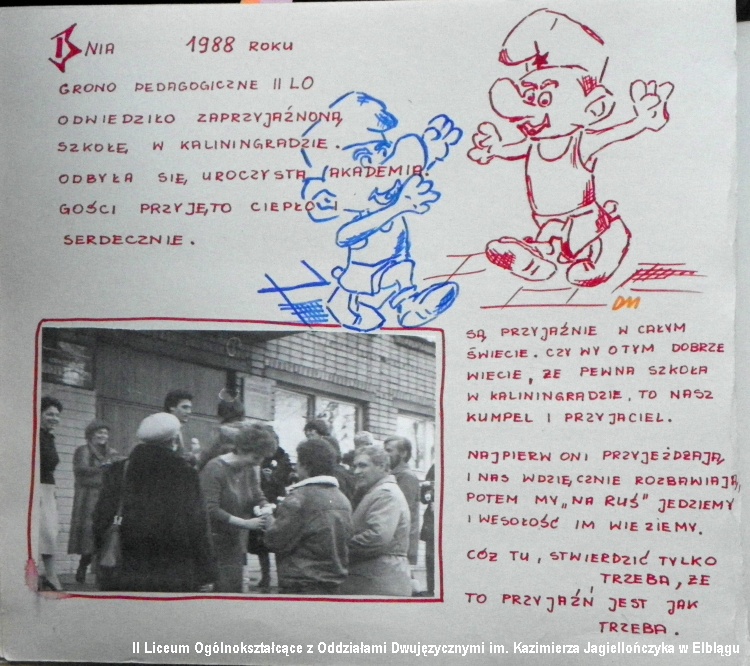 NIA 1988 ROKU
GRONO PEDAGOGICZNE II LO
ODWIEDZIŁO ZAPRZYJAŹNIONĄ
SZKOŁĘ W KALININGRADZIE.
ODBYŁA SIĘ UROCZYSTA AKADEMIA.
GOŚCI PRZYJĘTO CIEPŁO I
SERDECZNIE.
SĄ PRZYJAŹNIE W CAŁYM
ŚWIECIE. CZY WY O TYM DOBRZE
WIECIE, ŻE PEWNA SZKOŁA
W KALININGRADZIE, TO NASZ
KUMPEL I PRZYJACIEL.
NAJPIERW ONI PRZYJEŻDŻAJĄ
I NAS WDZIĘCZNIE ROZBAWIAJĄ,
POTEM MY „NA RUŚ" JEDZIEMY
I WESOŁOŚĆ IM WIEZIEMY.
CÓŻ TU, STWIERDZIĆ TYLKO
TRZEBA, ŻE
TO PRZYJAŹŃ JEST JAK
TRZEBA.
II Liceum Ogólnokształcące z Oddziałami Dwujęzycznymi im. Kazimierza Jagiellończyka w Elblągu